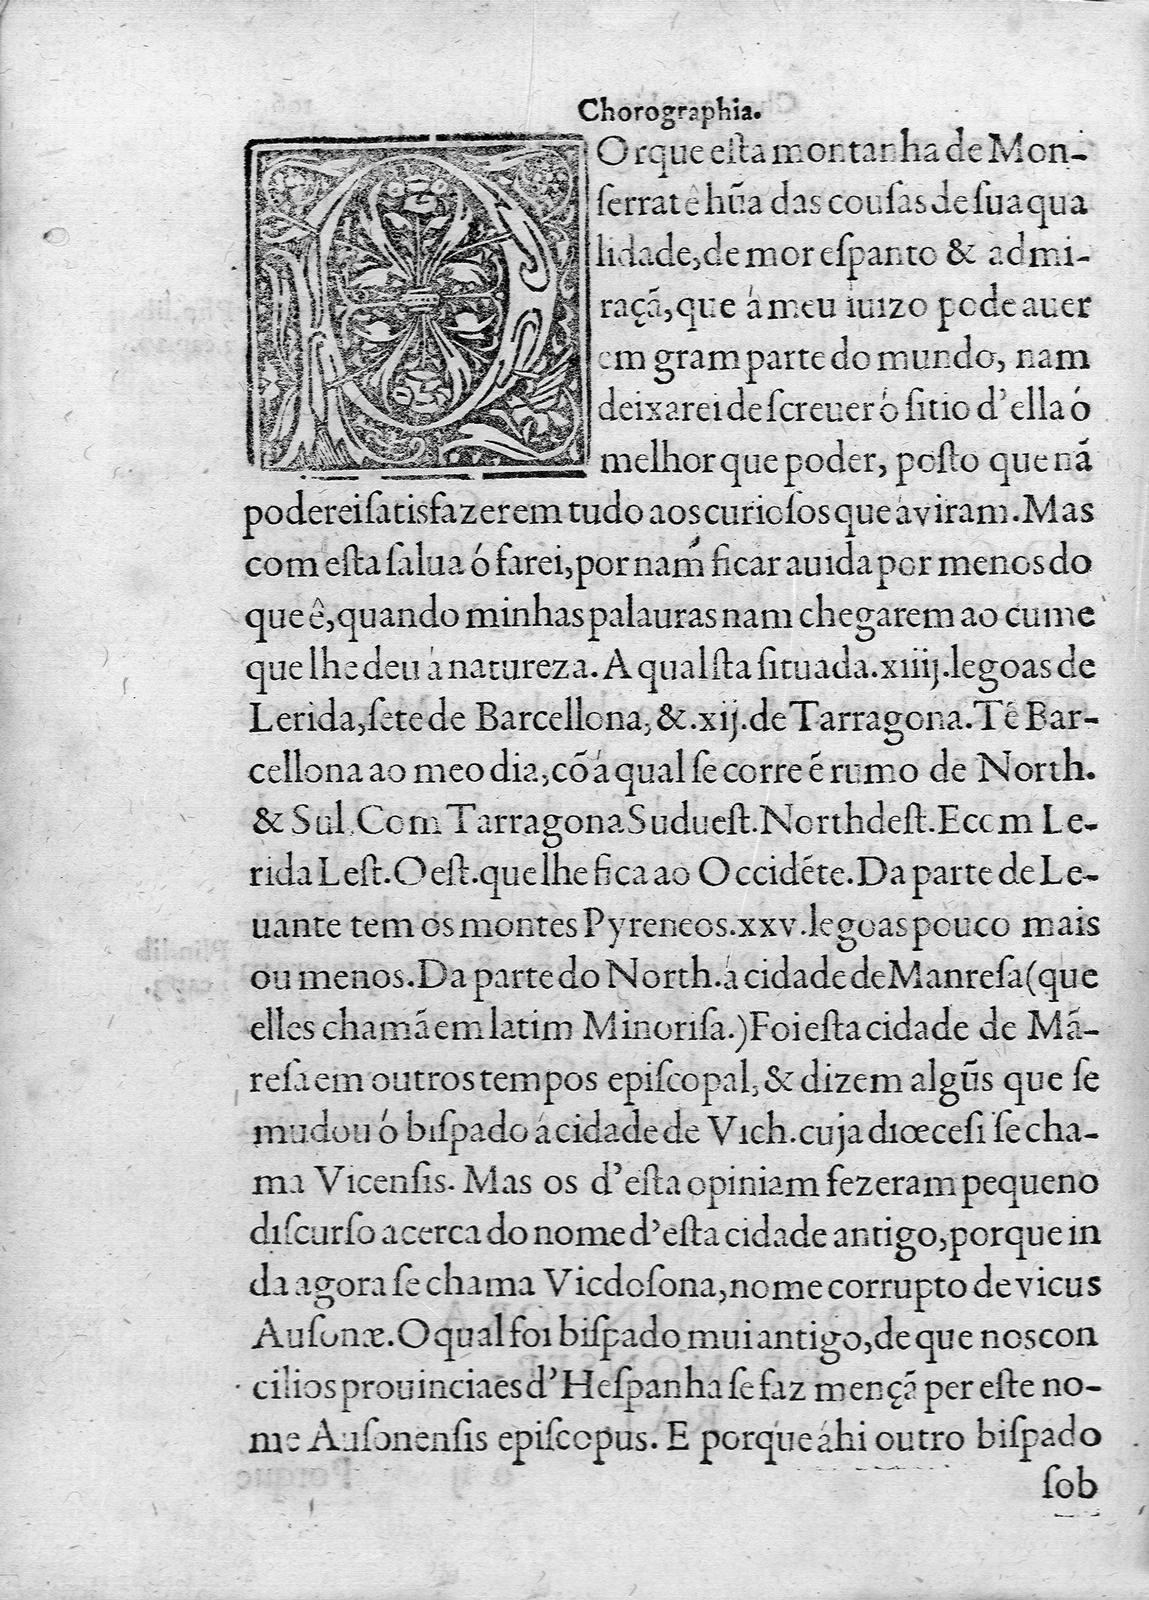 Chorographia.
POrque eſta montanha de Mon-
ſerrat ê hũa das couſas de ſua qua
lidade, de mor eſpanto & admi-
raçã, que á meu iuizo pode auer
em gram parte do mundo, nam
deixarei de ſcreuer ó ſitio d'ella ó
melhor que poder, poſto que nã
poderei ſatisfazer em tudo aos curioſos que á viram. Mas
com eſta ſalua ó farei, por nam ficar auida por menos do
que ê, quando minhas palauras nam chegarem ao cume
que lhe deu á natureza. A qual ſta ſituada .xiiij. legoas de
Lerida, ſete de Barcellona, & .xij. de Tarragona. Tẽ Bar-
cellona ao meo dia, cõ á qual ſe corre ẽ rumo de North.
& Sul. Com Tarragona Sudueſt. Northdeſt. E com Le-
rida Leſt. Oeſt. que lhe fica ao Occidẽte. Da parte de Le-
uante tem os montes Pyreneos .xxv. legoas pouco mais
ou menos. Da parte do North. á cidade de Manreſa (que
elles chamã em latim Minoriſa.) Foi eſta cidade de Mã-
reſa em outros tempos epiſcopal, & dizem algũs que ſe
mudou ó biſpado á cidade de Vich. cuja diœceſi ſe cha-
ma Vicenſis. Mas os d'eſta opiniam fezeram pequeno
diſcurſo acerca do nome d'eſta cidade antigo, porque in
da agora ſe chama Vicdoſona, nome corrupto de vicus
Auſonæ. O qual foi biſpado mui antigo, de que nos con
cilios prouinciaes d'Heſpanha ſe faz mençã per eſte no-
me Auſonenſis epiſcopus. E porque áhi outro biſpado
ſob